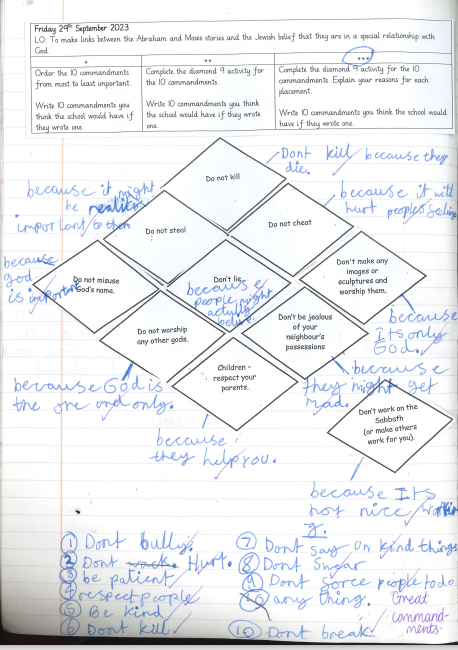 Friday 29th September 2023
LO: To make links between the Abraham and Moses stories and the Jewish belief that they are in a special relationship with
God
*
**
***
Order the 10 commandments
from most to least important.
Write 10 commandments you
think the school would have if
they wrote one.
Complete the diamond 9 activity for
the 10 commandments.
Write 10 commandments you think
the school would have if they wrote
one.
Complete the diamond 9 activity for the 10
commandments. Explain your reasons for each
placement.
Write 10 commandments you think the school would
have if they wrote one.
Do not kill
Dont kill because they
die.
Do not steal
because it might
be
important to them
Do not cheat
because it will
hurt peoples
Do not misuse
God's name.
because
god
is important
Don't lie
because
people might
believe
Don't make any
images or
sculptures and
worship them.
because
Its only
God.
Do not worship
any other gods.
because God is
the one and only.
Don't be jealous
of your
neighbour's
possessions
because
they might get
mad.
Children -
respect your
parents.
because
they help you.
Don't work on the
Sabbath
(or make others
work for you).
because Its
not nice
① Dont bully.
2 Dont Hurt.
③ be patient
4 respect people
⑤ Be kind
⑥ Dont kill
⑦ Dont say un kind things
⑧ Dont Swear
⑨ Dont Force people to do
any thing.
⑩ Dont break
Great
command-
ments.